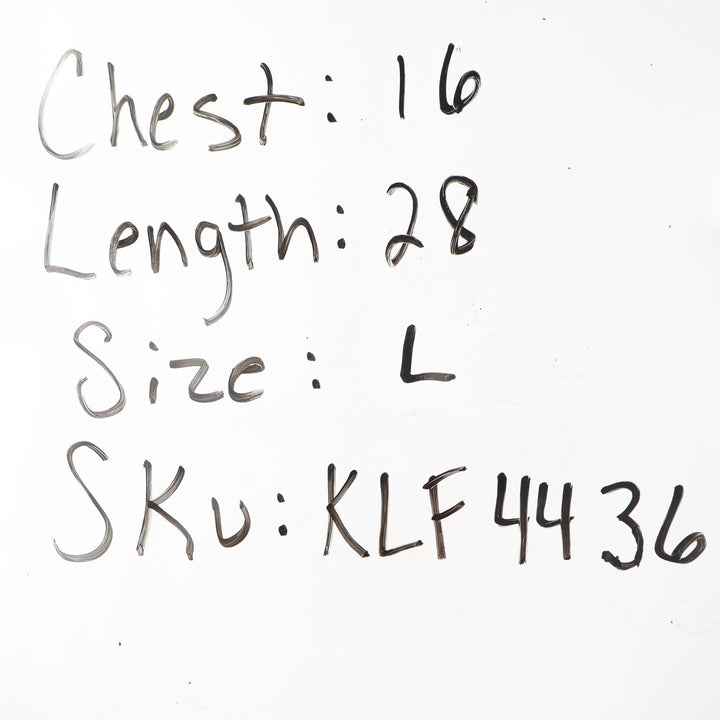 Chest: 16
Length: 28
Size: L
SKU: KLF4436